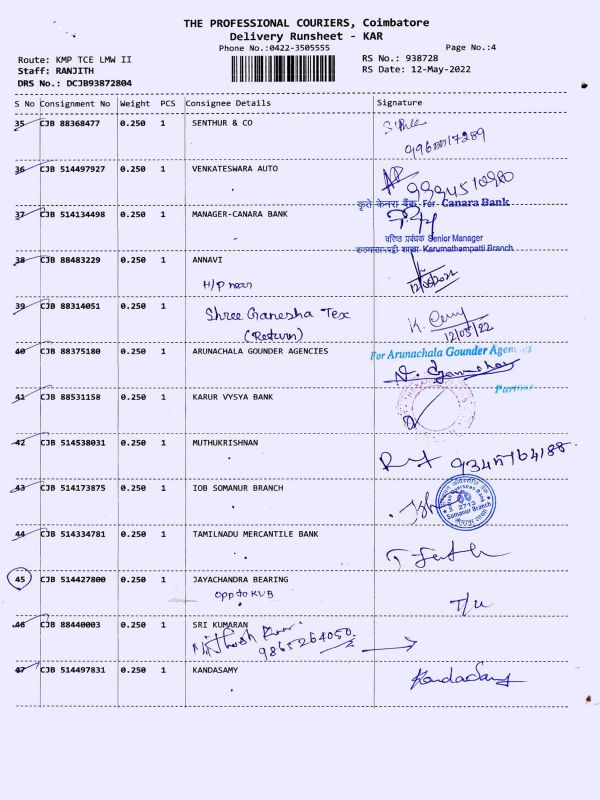 THE PROFESSIONAL COURIERS, Coimbatore
Delivery Runsheet - KAR
Phone No.:0422-3505555
Page No.:4
Route: KMP TCE LMW II
RS No.: 938728
Staff: RANJITH
RS Date: 12-May-2022
DRS No.: DCJB93872804
S No Consignment No Weight PCS Consignee Details Signature
35 CJB 88368477 0.250 1 SENTHUR & CO
36 CJB 514497927 0.250 1 VENKATESWARA AUTO
कृते केनरा बैंक For Canara Bank
37 CJB 514134498 0.250 1 MANAGER-CANARA BANK
वरिष्ठ प्रबंधक Senior Manager
शाखा Karumathampatti Branch
38 CJB 88483229 0.250 1 ANNAVI
H/p near
12/05/2022
39 CJB 88314051 0.250 1 Shree Ganesha Tex
(Return)
12/05/22
40 CJB 88375180 0.250 1 ARUNACHALA GOUNDER AGENCIES
For Arunachala Gounder Agencies
Partner
41 CJB 88531158 0.250 1 KARUR VYSYA BANK
42 CJB 514538031 0.250 1 MUTHUKRISHNAN
43 CJB 514173875 0.250 1 IOB SOMANUR BRANCH
2713
Somanur Branch
44 CJB 514334781 0.250 1 TAMILNADU MERCANTILE BANK
45 CJB 514427800 0.250 1 JAYACHANDRA BEARING
opp to KVB
46 CJB 88440003 0.250 1 SRI KUMARAN
9865264050
47 CJB 514497831 0.250 1 KANDASAMY
Kandasamy